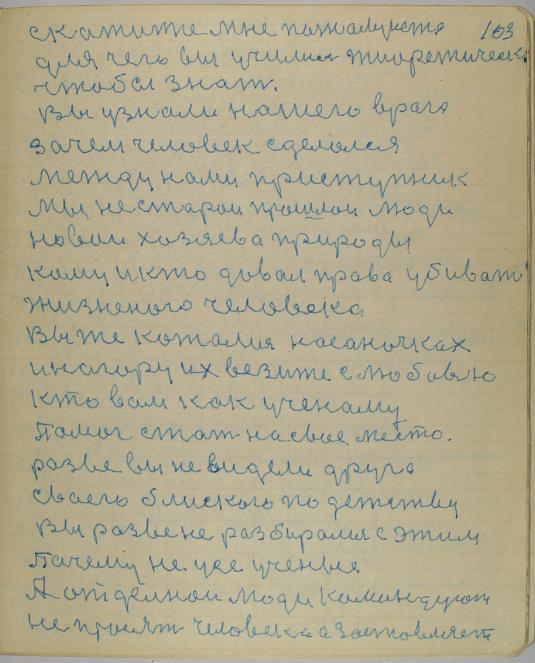 скажите мне пожалуиста 103
для чего вы учились тиоретически
чтобы знат.
Вы узнали нашего врага
зачем человек сделался
между нами приступник
мы не старои прошлои люди
новаи хозяева природы
кому и кто довал права убиват
жизненого человека
Вы же каталия на саночках
и на гору их везите с любовю
Кто вам как ученаму
памог стат на свае место.
разве вы не видели друга
сваего близкого по детству
Вы разве не разбиралис с этим
Пачему не усе ученые
А отделнои люди командуют
не просят человека а заставляет